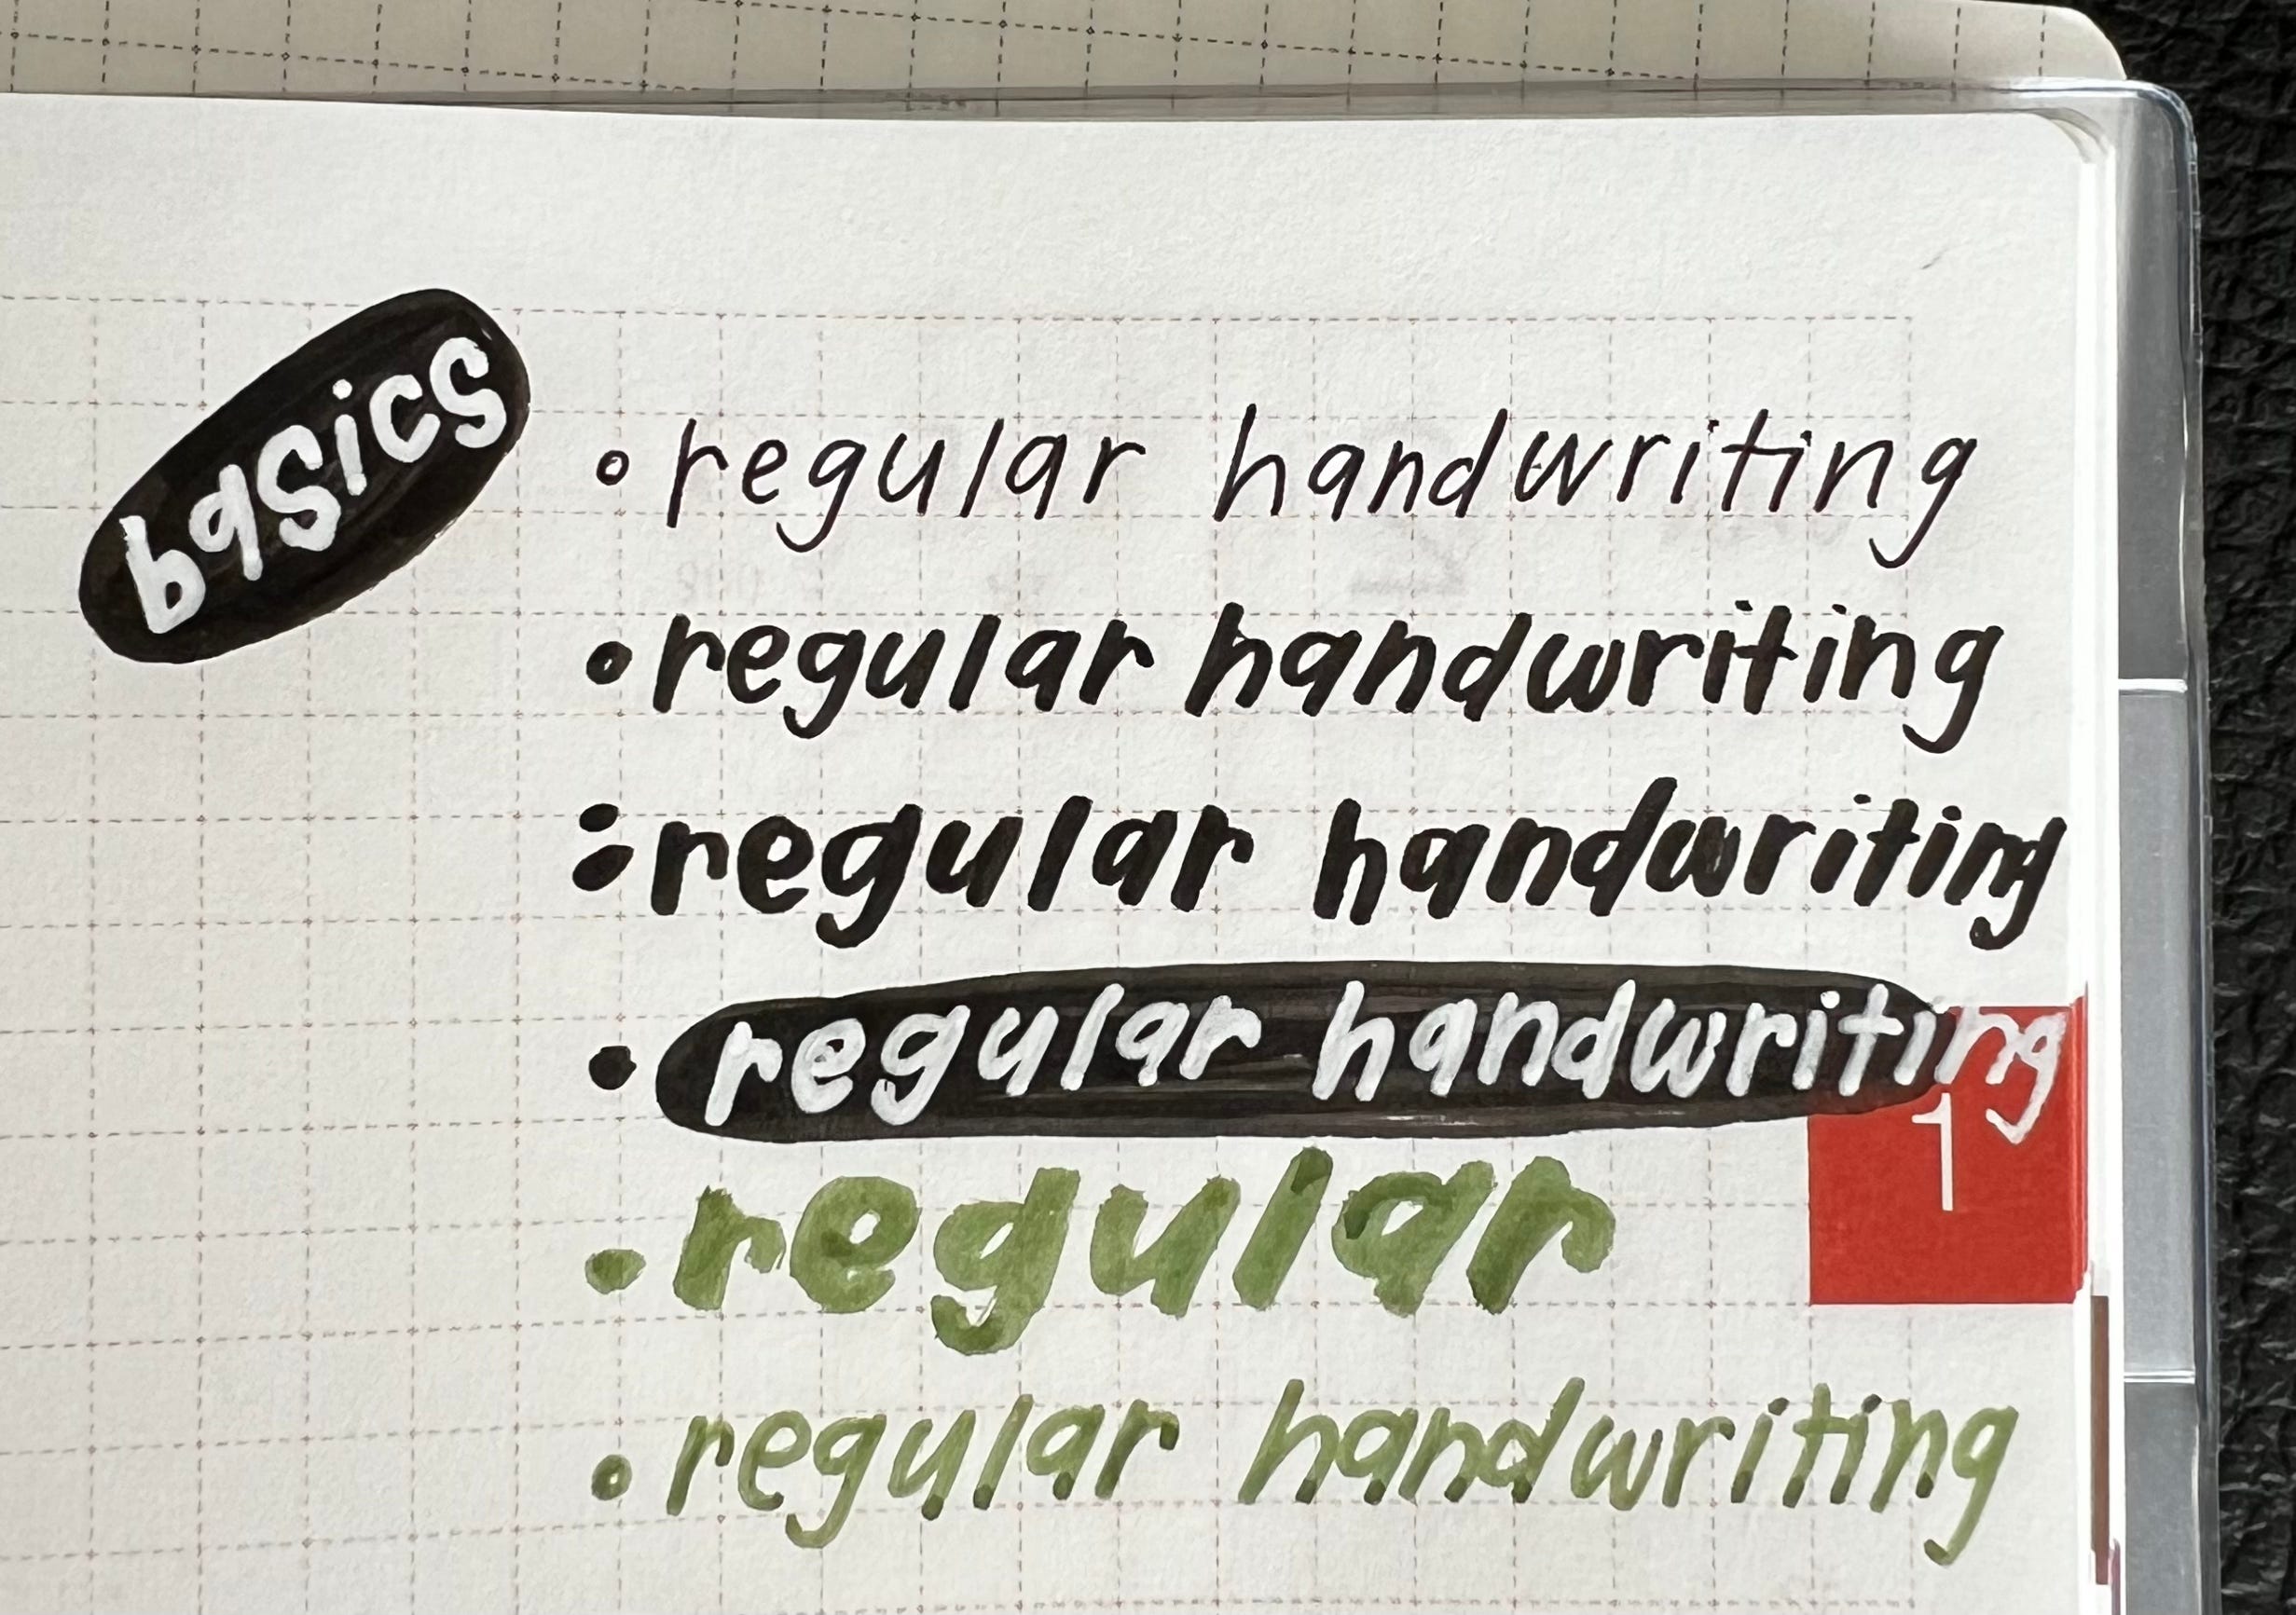 basics
• regular handwriting
• regular handwriting
: regular handwriting
• regular handwriting
1
• regular
• regular handwriting